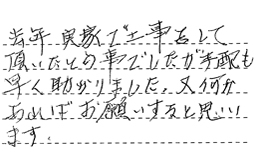 去年実家で工事をして
頂いたとの事でしたが手配も
早く助かりました。又何か
あればお願いすると思い
ます。